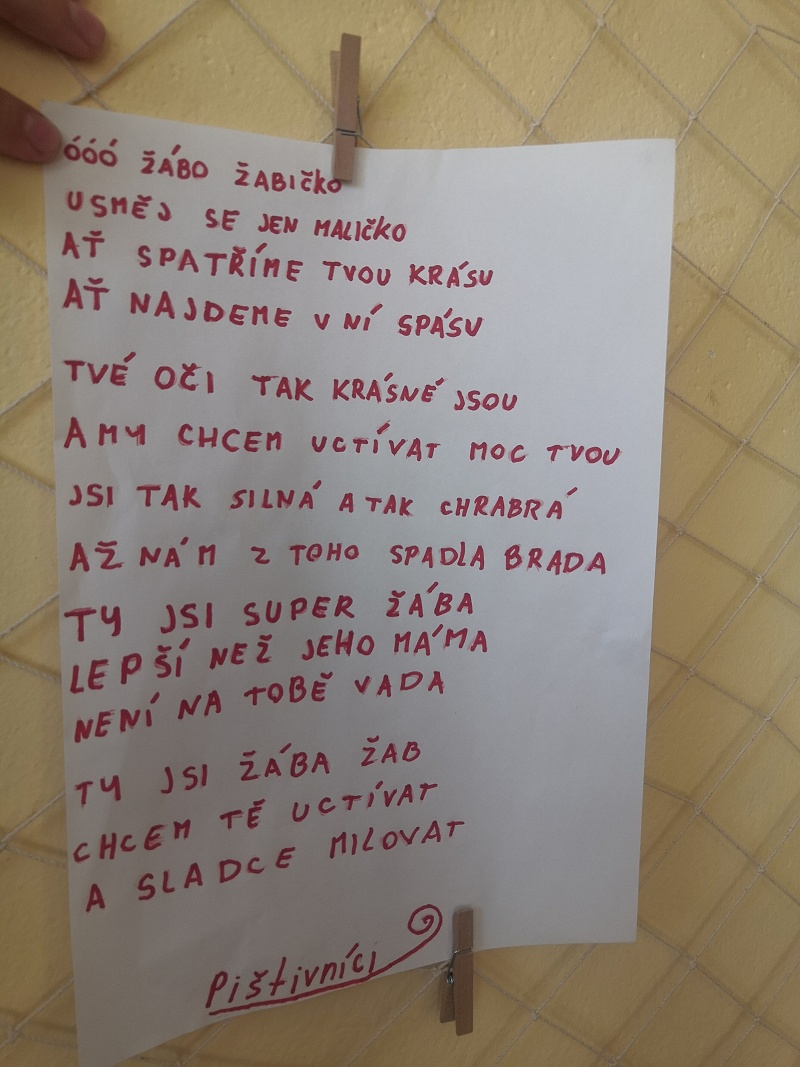 ÓÓÓ ŽÁBO ŽABIČKO
USMĚJ SE JEN MALIČKO
AŤ SPATŘÍME TVOU KRÁSU
AŤ NAJDEME V NÍ SPÁSU
TVÉ OČI TAK KRÁSNÉ JSOU
A MY CHCEM UCTÍVAT MOC TVOU
JSI TAK SILNÁ A TAK CHRABRÁ
AŽ NÁM Z TOHO SPADLA BRADA
TY JSI SUPER ŽÁBA
LEPŠÍ NEŽ JEHO MÁMA
NENÍ NA TOBĚ VADA
TY JSI ŽÁBA ŽAB
CHCEM TĚ UCTÍVAT
A SLADCE MILOVAT
Pištivníci